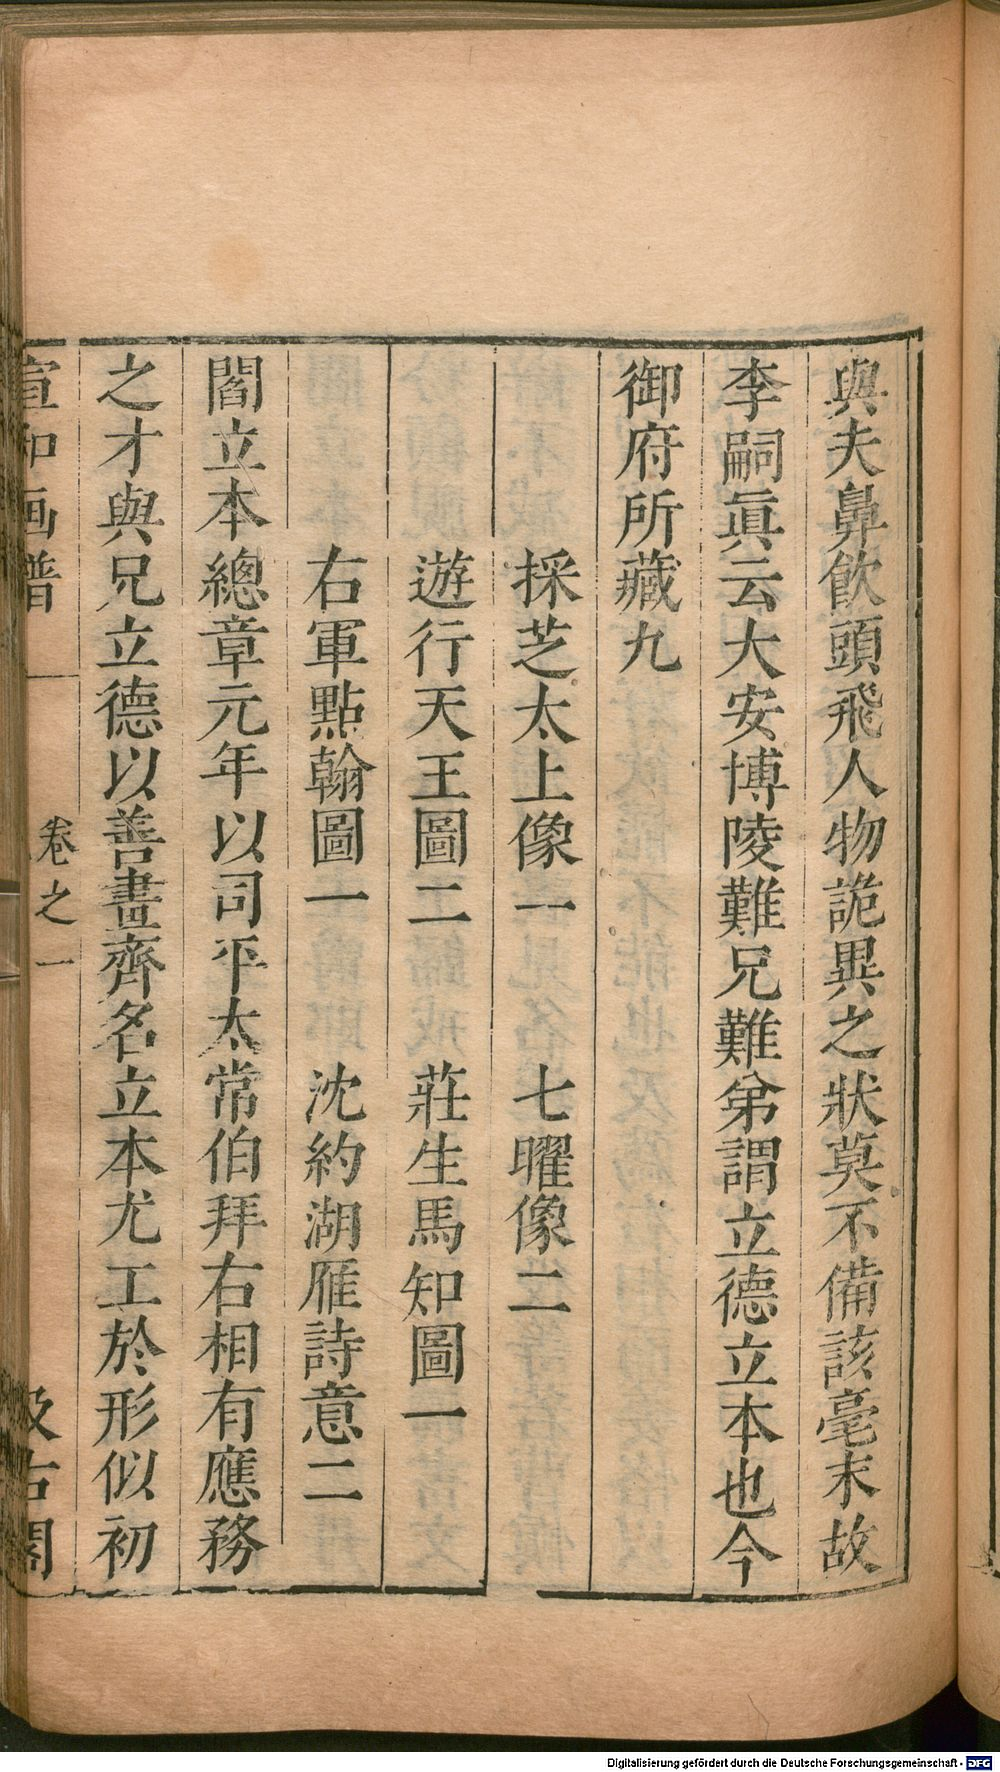 與夫鼻飲頭飛人物詭異之狀莫不備該毫末故
李嗣眞云大安博陵難兄難弟謂立德立本也今
御府所藏九
採芝太上像一　七曜像二
遊行天王圖二　莊生馬知圖一
右軍點翰圖一　沈約湖雁詩意二
閻立本總章元年以司平太常伯拜右相有應務
之才與兄立德以善畫齊名立本尤工於形似初
宣和画譜　卷之一　汲古閣
Digitalisierung gefördert durch die Deutsche Forschungsgemeinschaft - DFG